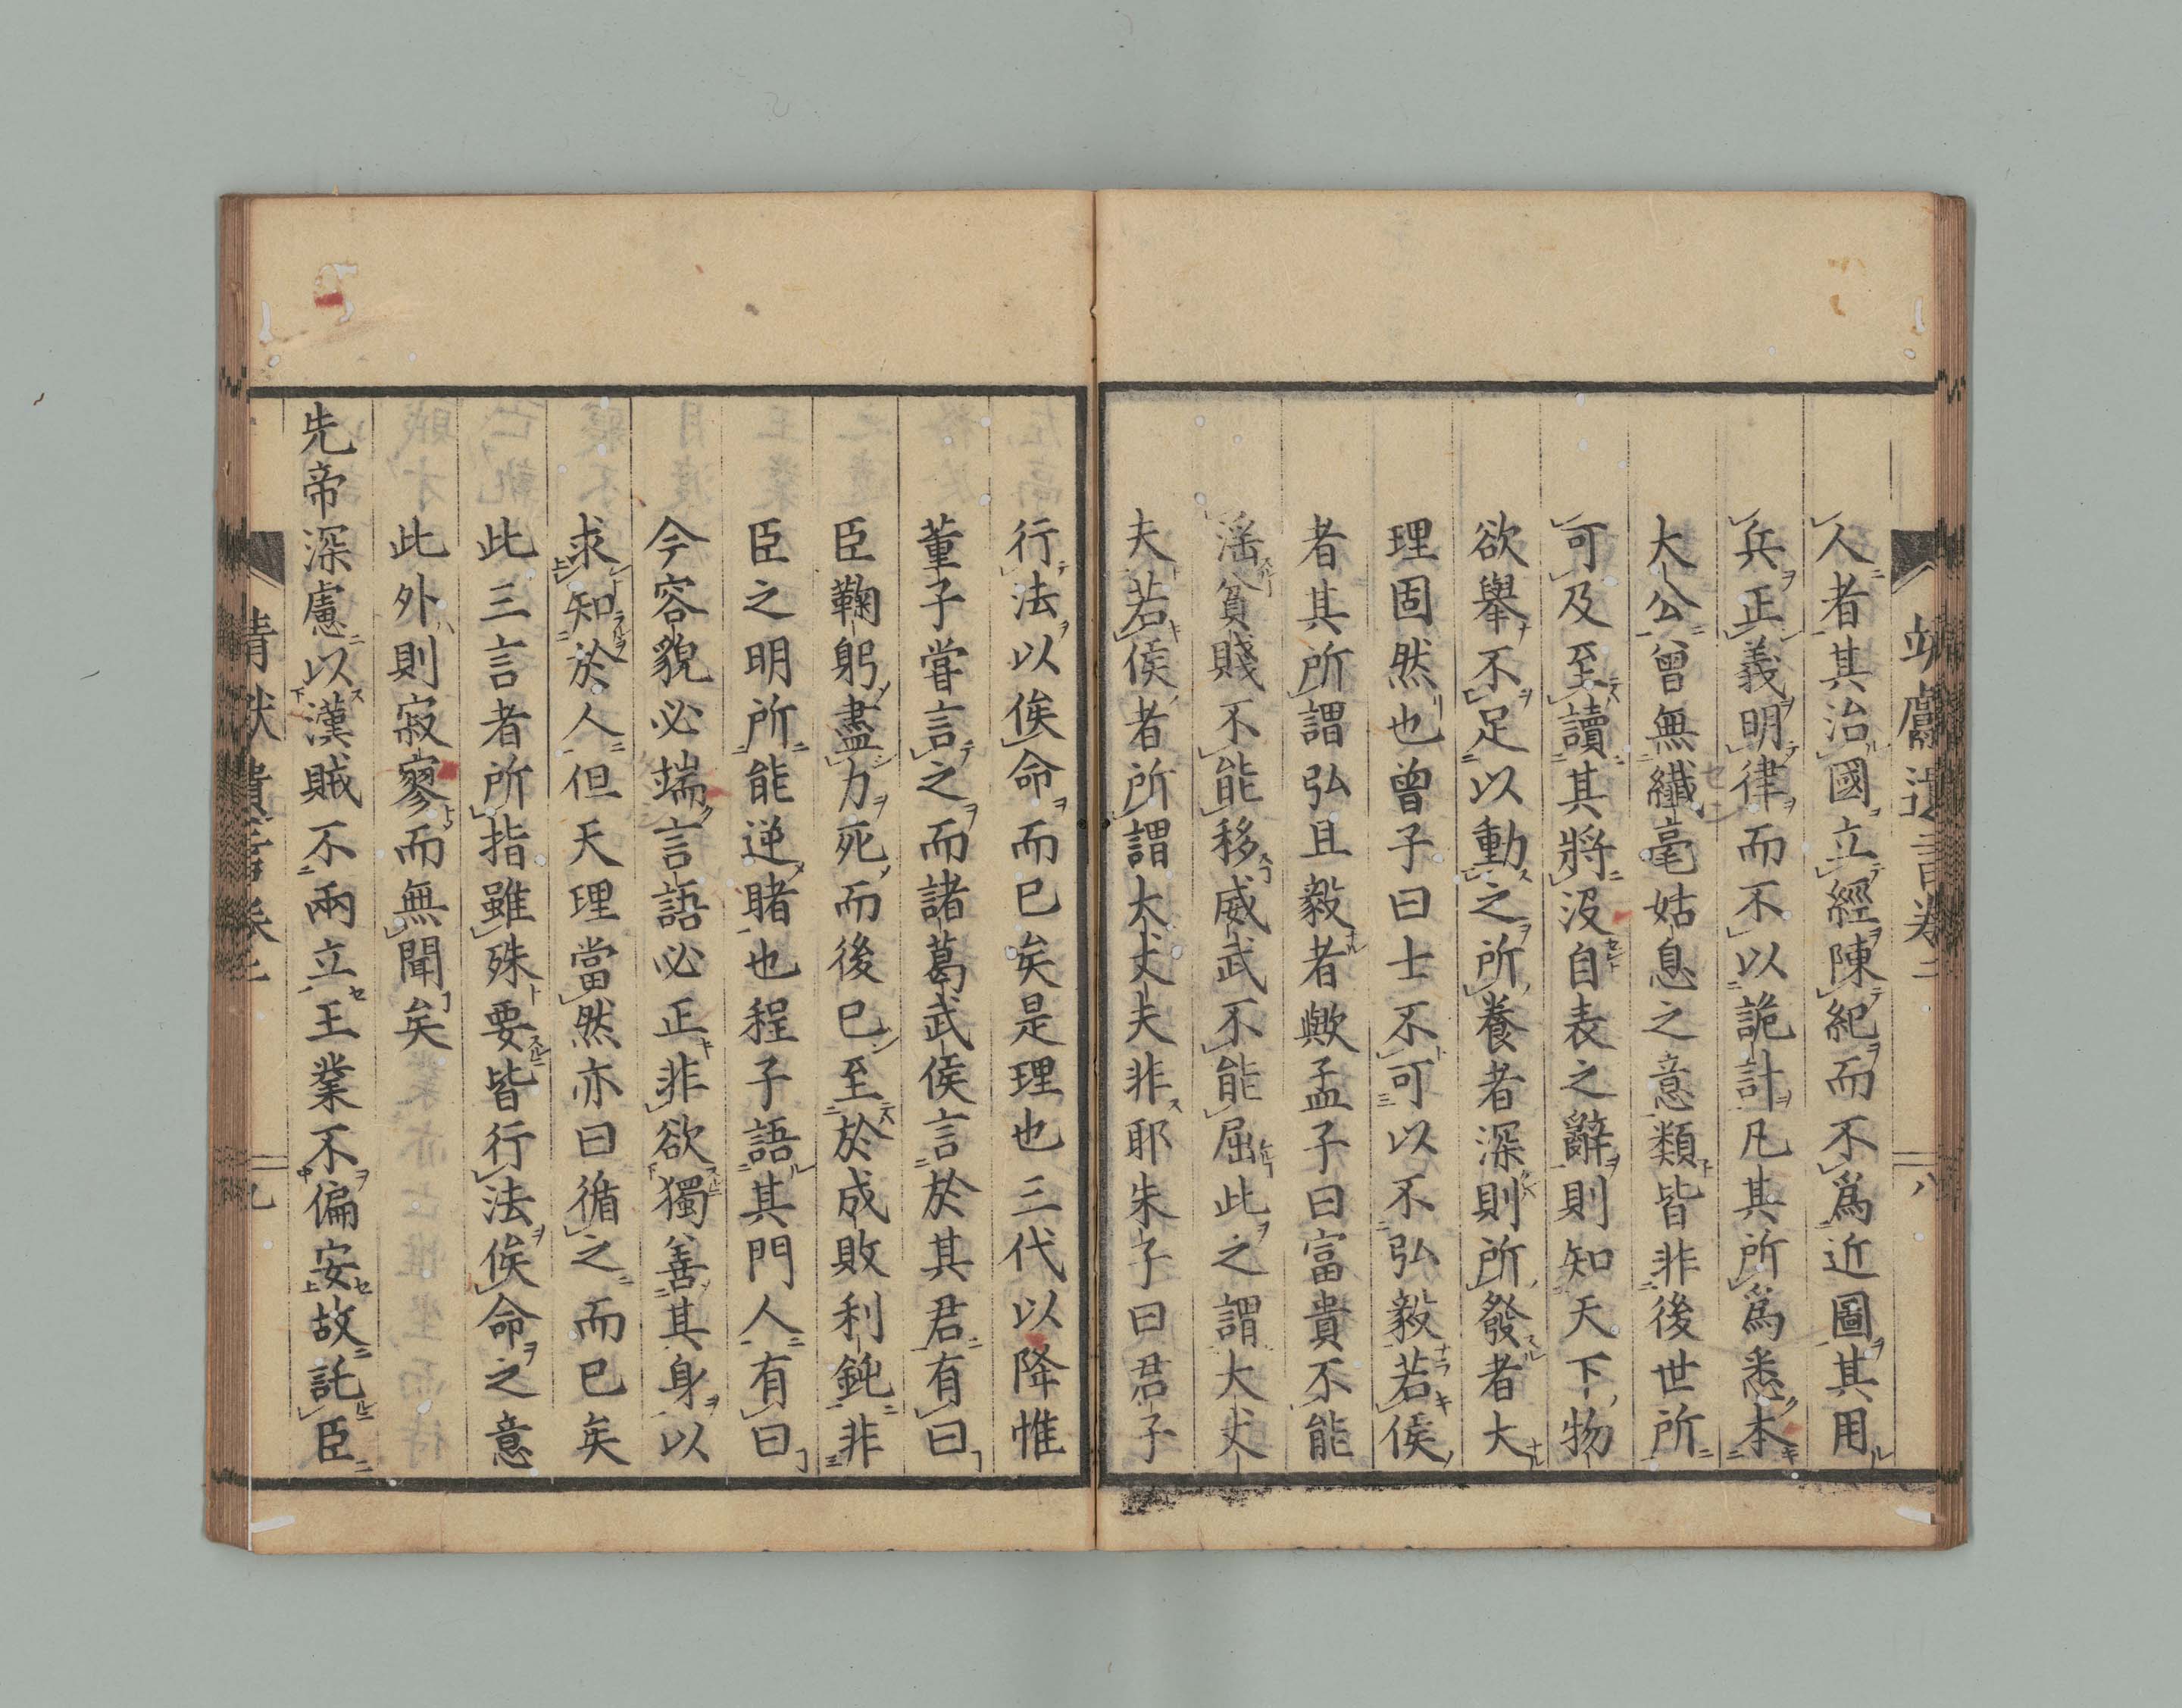 靖獻遺言卷二 八
人者其治國立經陳紀而不爲近圖其用
兵正義明律而不以詭計凡其所爲悉本
大公曾無纖毫姑息之意類皆非後世所
可及至讀其將沒自表之辭則知天下物
欲舉不足以動之所養者深則所發者大
理固然也曾子曰士不可以不弘毅若侯
者其所謂弘且毅者歟孟子曰富貴不能
淫貧賤不能移威武不能屈此之謂大丈
夫若侯者所謂大丈夫非耶朱子曰君子
行法以俟命而已矣是理也三代以降惟
董子嘗言之而諸葛武侯言於其君有曰
臣鞠躬盡力死而後已至於成敗利鈍非
臣之明所能逆睹也程子語其門人有曰
今容貌必端言語必正非欲獨善其身以
求知於人但天理當然亦曰循之而已矣
此三言者所指雖殊要皆行法俟命之意
此外則寂寥而無聞矣
先帝深慮以漢賊不兩立王業不偏安故託臣
靖獻遺言卷二 九